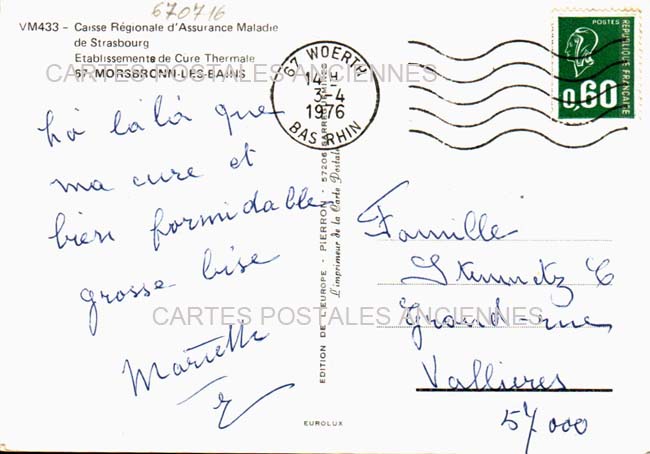 670716
VM433 - Caisse Régionale d'Assurance Maladie
de Strasbourg
Etablissements de Cure Thermale
67-MORSBRONN-LES-BAINS
CARTES POSTALES ANCIENNES
67 WOERTH
14 H
3-4
1976
BAS RHIN
POSTES
REPUBLIQUE FRANCAISE
0,60
hà là là que
ma cure et
bien formidable
grosse bise
Mariette
EDITION DE L'EUROPE - PIERRON - 57206 SARREGUEMINES
L'imprimeur de la Carte Postale
Famille
Grand-rue
Vallieres
57000
CARTES POSTALES ANCIENNES
EUROLUX